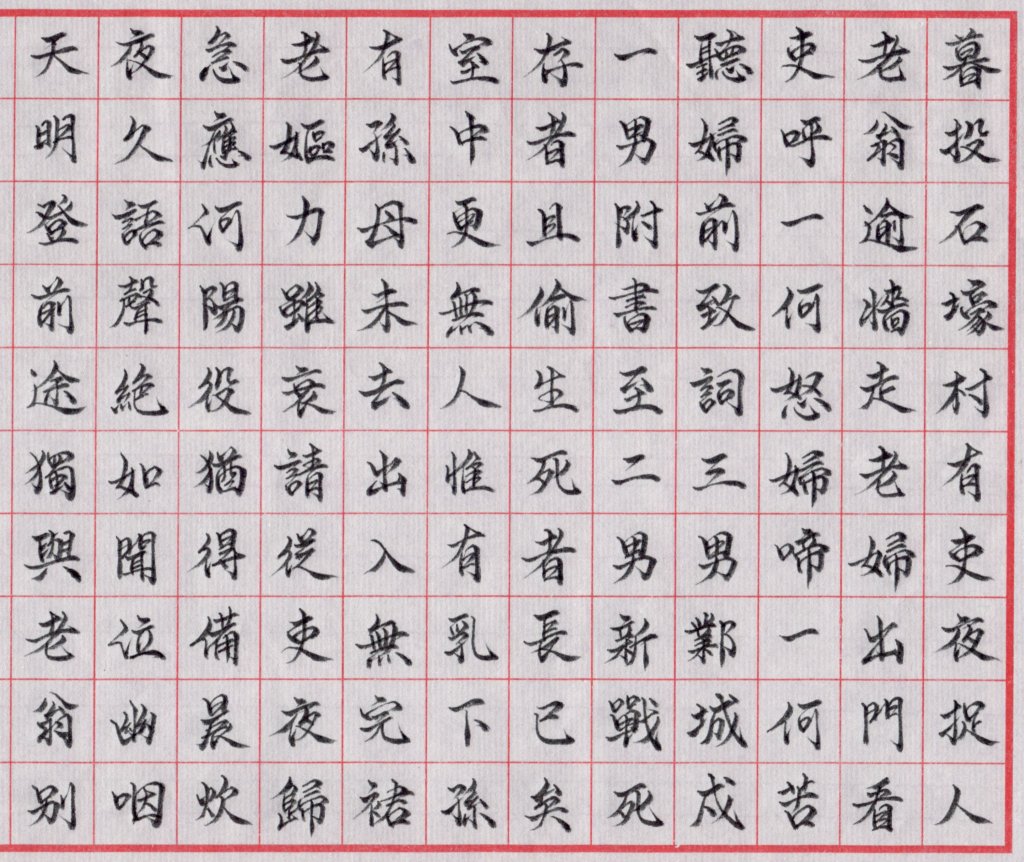 暮投石壕村有吏夜捉人
老翁逾牆走老婦出門看
吏呼一何怒婦啼一何苦
聽婦前致詞三男鄴城戍
一男附書至二男新戰死
存者且偷生死者長已矣
室中更無人惟有乳下孫
有孫母未去出入無完裙
老嫗力雖衰請從吏夜歸
急應河陽役猶得備晨炊
夜久語聲絕如聞泣幽咽
天明登前途獨與老翁別